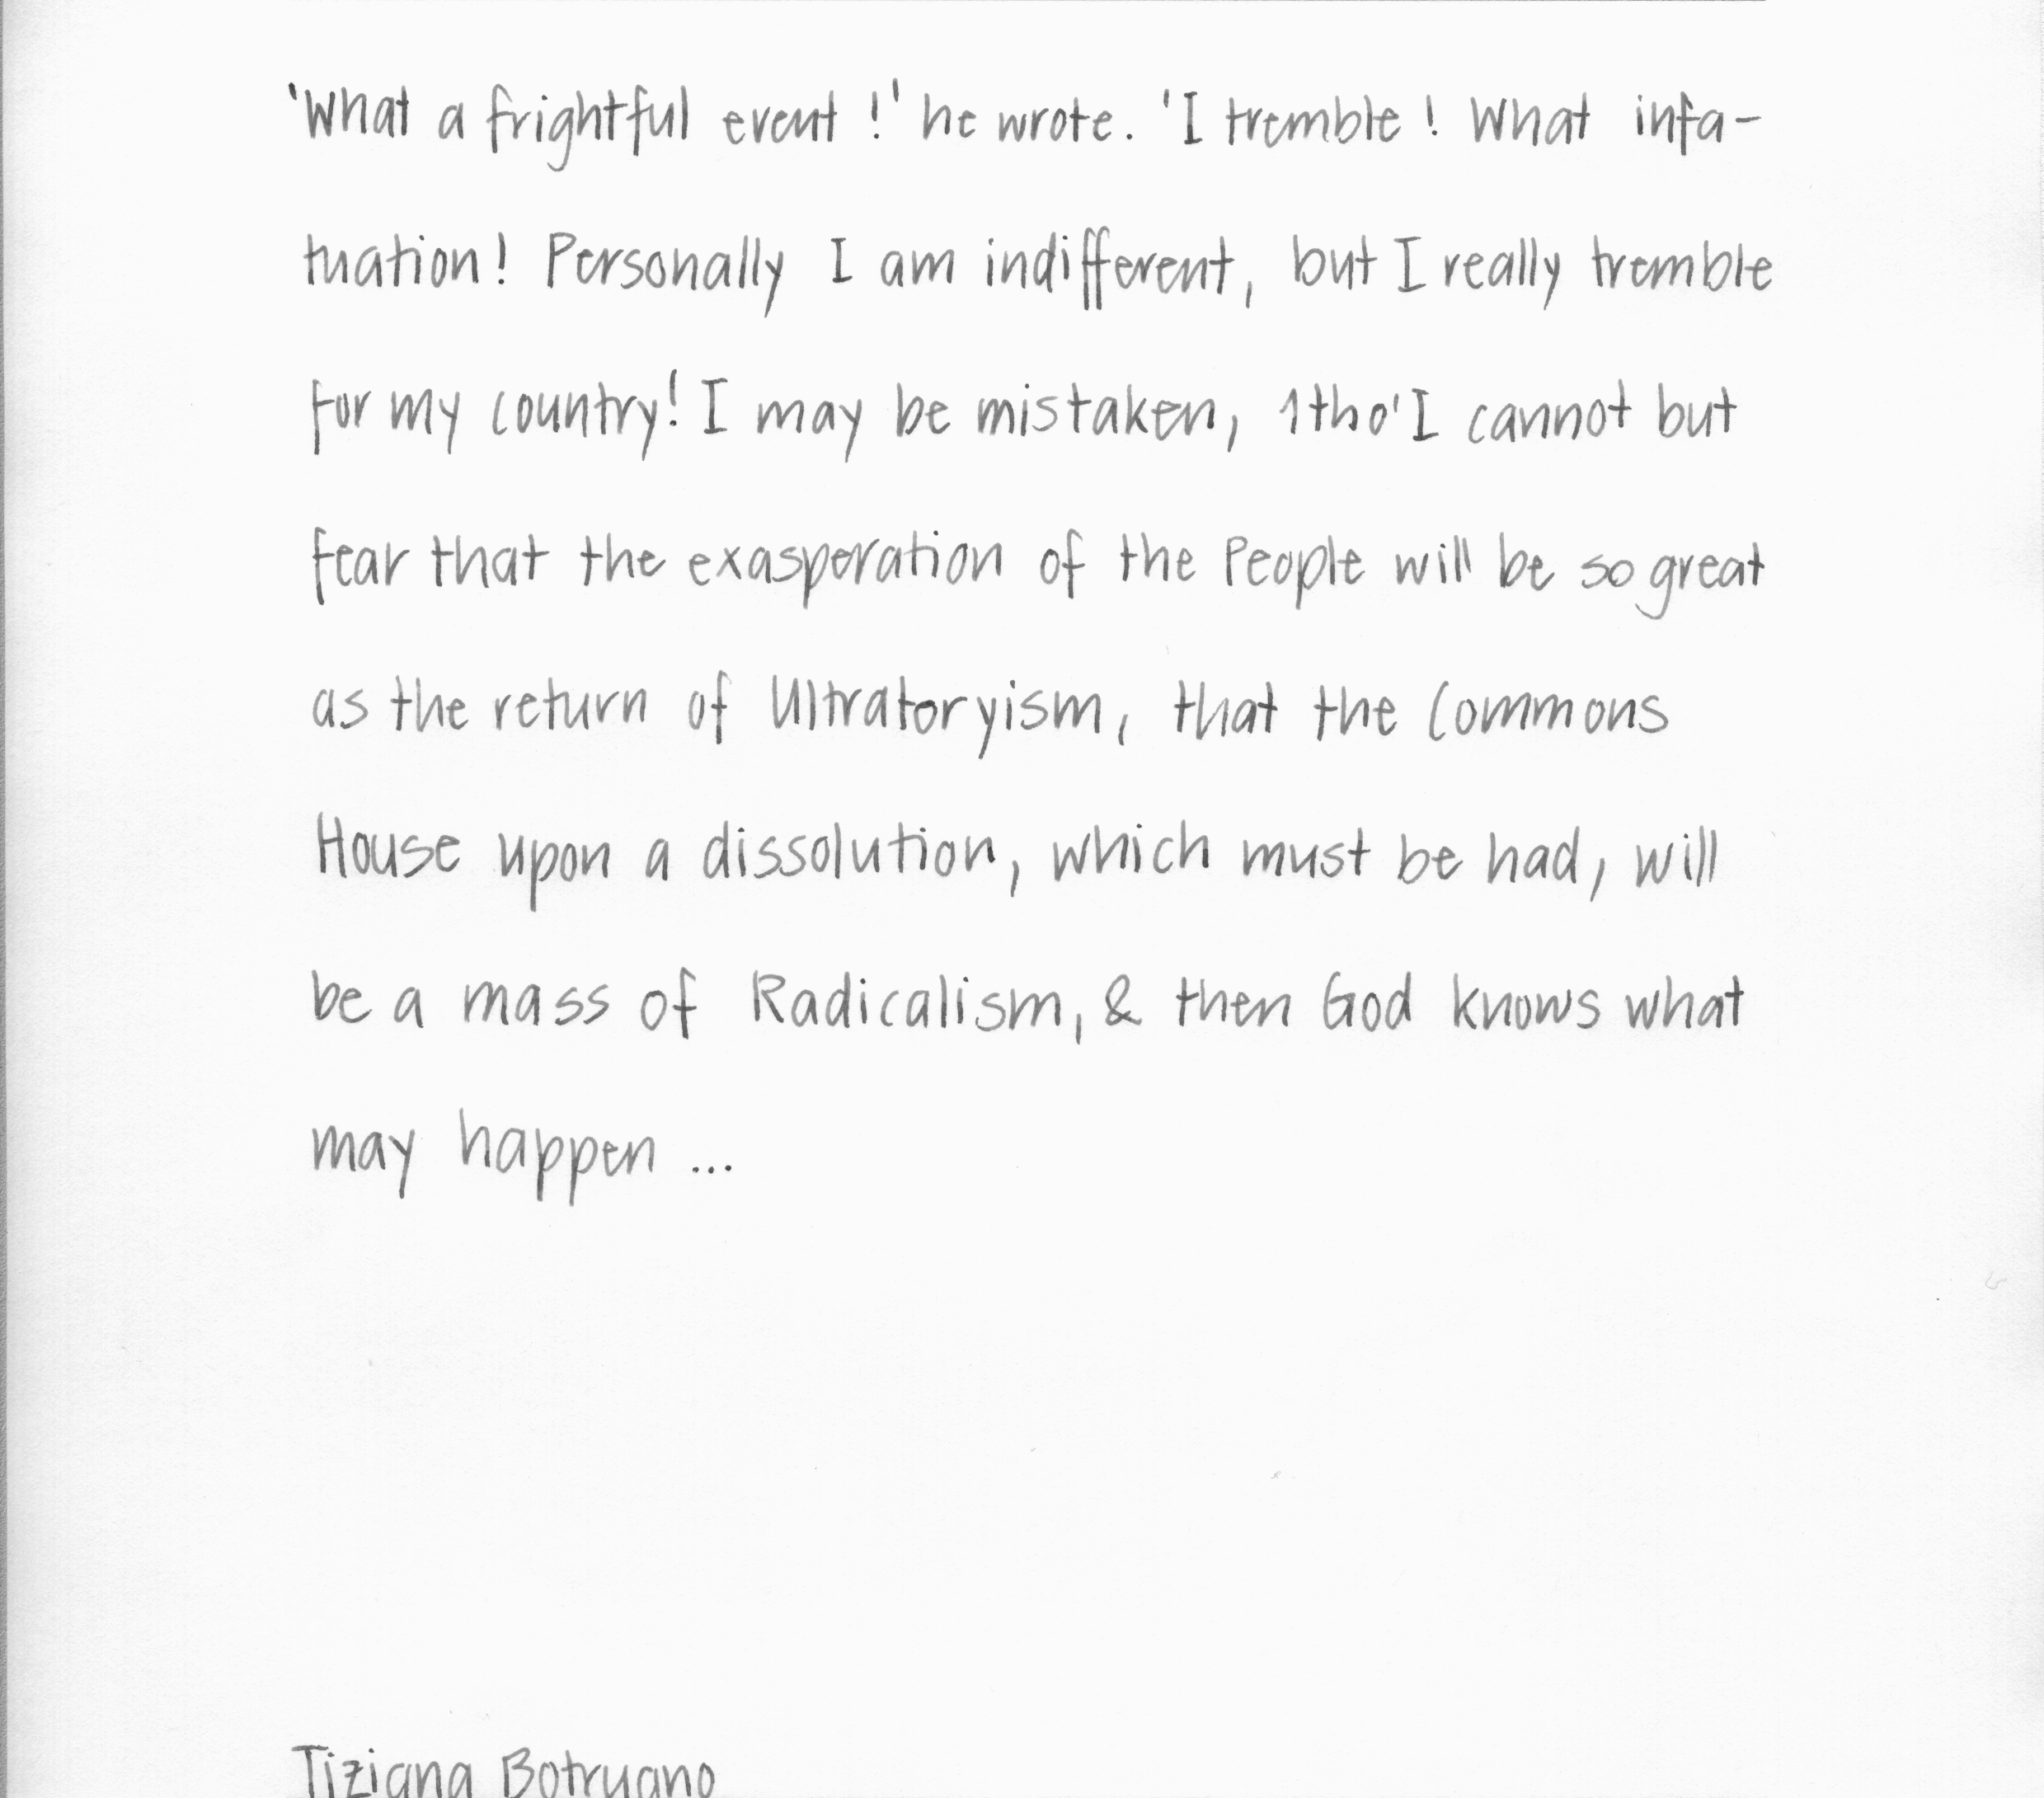 'What a frightful event!' he wrote. 'I tremble! What infa-
tuation! Personally I am indifferent, but I really tremble
for my country! I may be mistaken, 1tho' I cannot but
fear that the exasperation of the People will be so great
as the return of Ultratoryism, that the Commons
House upon a dissolution, which must be had, will
be a mass of Radicalism, & then God knows what
may happen ...
Tiziana